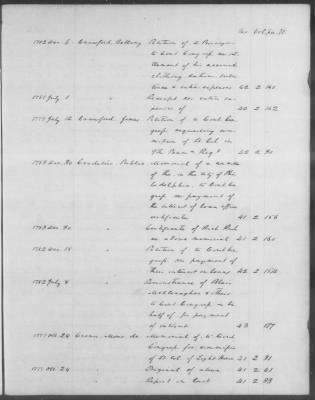 No. Vol. pa. Pl.
1782 Dec 6 Crawford Bellamy Petition of a Prisoner
to Cont Congress re set-
tlement of his account
clothing ration subsis-
tence & extra expenses 42 2 140
1781 July 1 " Receipt re extra ex-
penses of 42 2 142
1779 July 12 Crawford James Petition of to Cont Con-
gress requesting com-
mission of Lt Col in
9th Penn a Regt 42 2 90
1783 Dec 30 Creditors Public Memorial of a number
of the in the city of Phi-
ladelphia to Cont Con-
gress re payment of
the interest of loan office
certificates 41 2 156
1783 Dec 30 " Certificate of Rich
re above memorial 41 2 160
1782 Dec 18 " Petition of to Cont Con-
gress re payment of
their interest in loans 42 2 152
1782 July 8 " Remonstrance of Blair
McClenaghan &
to Cont Congress in be-
half of for payment
of interest 43 187
1777 Oct 24 Memorial of to Cont
Congress for commission
of Lt Col of Light Horse 41 2 31
1777 Oct 24 " Original of above 41 2 41
Report on last 41 2 39